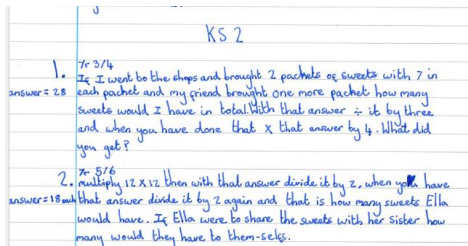 KS2
Yr 3/4
1. If I went to the shops and brought 2 packets of sweets with 7 in
answer = 28 each packet and my friend brought one more packet how many
sweets would I have in total. With that answer ÷ it by three
and when you have done that x that answer by 4. What did
you get?
Yr 5/6
2. multiply 12 x 12 then with that answer divide it by 2, when you have
answer = 18 each that answer divide it by 2 again and that is how many sweets Ella
would have. If Ella were to share the sweets with her sister how
many would they have to them-selfs.